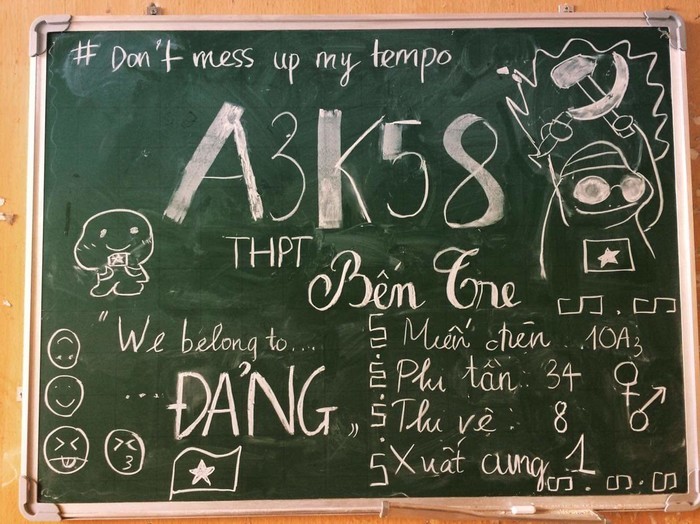 # Don't mess up my tempo
A3K58
THPT
Bến Tre
"We belong to....
... ĐẢNG"
Miến diện 10A3
Phi tần: 34
Thị vệ: 8
Xuất cung 1